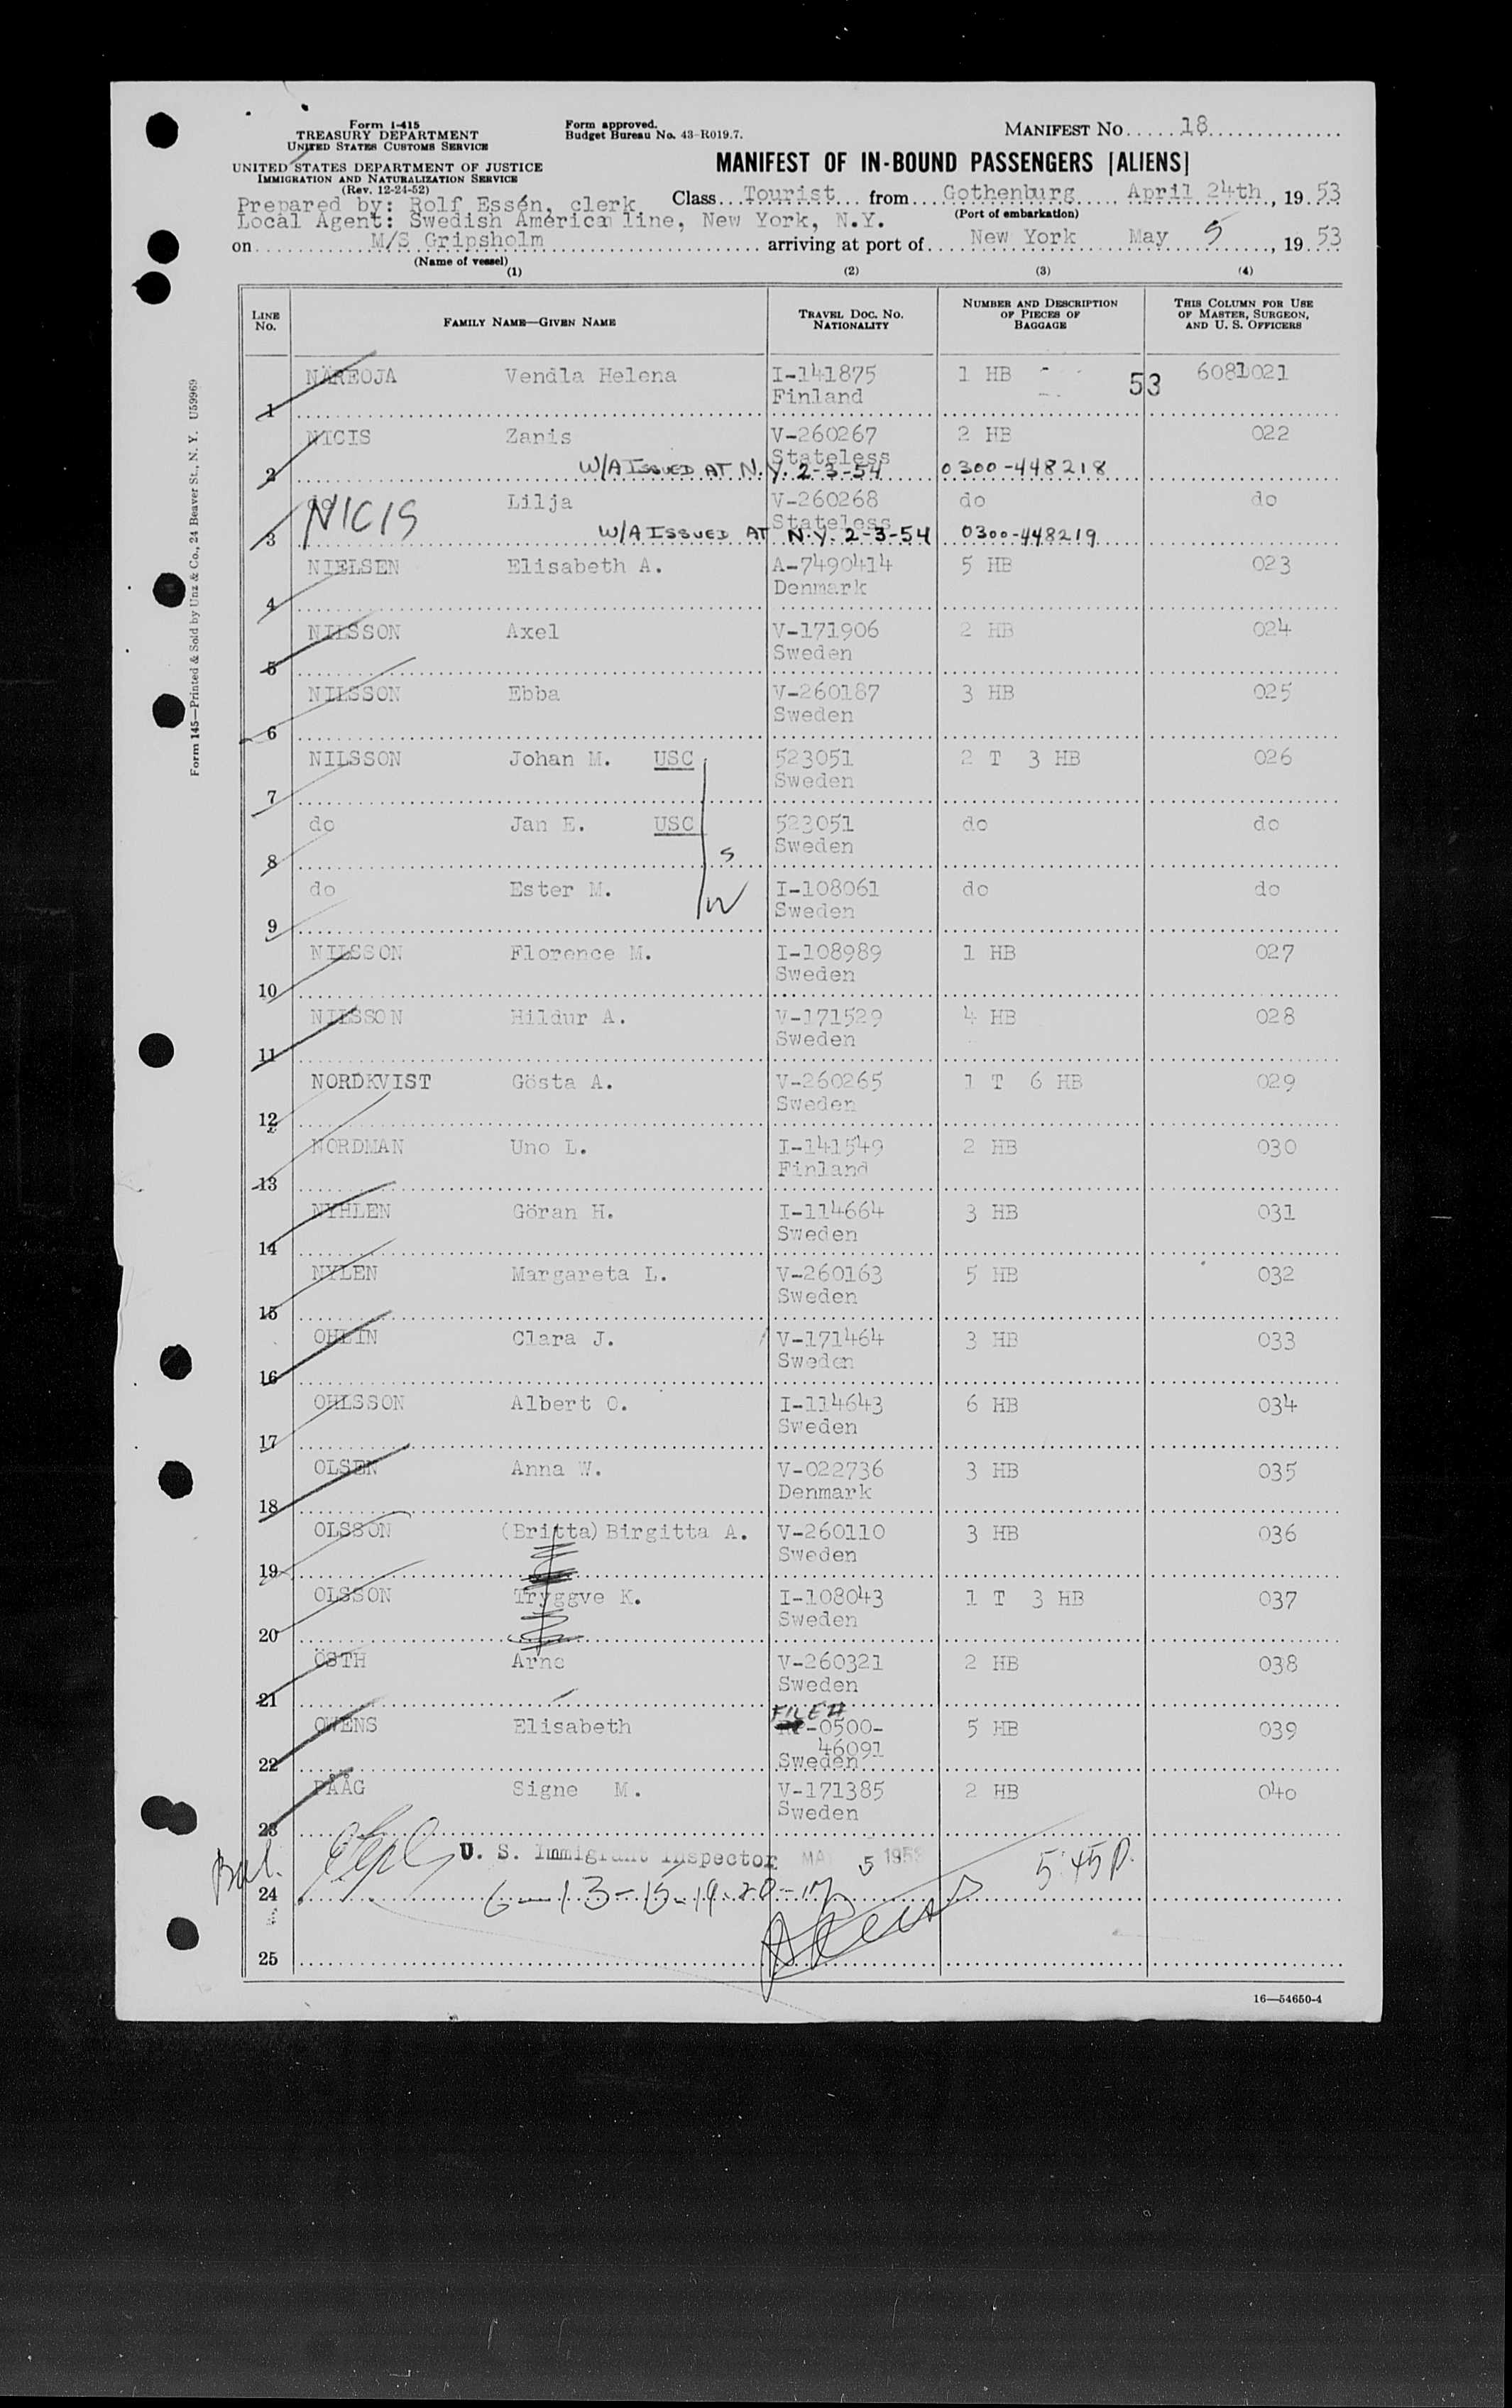 Form I-415
TREASURY DEPARTMENT
UNITED STATES CUSTOMS SERVICE
UNITED STATES DEPARTMENT OF JUSTICE
IMMIGRATION AND NATURALIZATION SERVICE
(Rev. 12-24-52)
Form approved.
Budget Bureau No. 43-R019.7.
MANIFEST NO. 18
MANIFEST OF IN-BOUND PASSENGERS [ALIENS]
Class Tourist from Gothenburg April 24th, 19 53
(Port of embarkation)
Prepared by: Rolf Essén, clerk
Local Agent: Swedish America line, New York, N.Y.
on M/S Gripsholm arriving at port of New York May 5, 19 53
(Name of vessel)
(1) (2) (3) (4)
LINE NO. FAMILY NAME—GIVEN NAME TRAVEL DOC. NO. NATIONALITY NUMBER AND DESCRIPTION OF PIECES OF BAGGAGE THIS COLUMN FOR USE OF MASTER, SURGEON, AND U. S. OFFICERS
1 NÄREOJA Vendla Helena I-141875 Finland 1 HB 53 6081021
2 NICIS Zanis V-260267 Stateless 2 HB 022
W/A ISSUED AT N.Y. 2-3-54 0300-448218
3 do NICIS Lilja V-260268 Stateless do do
W/A ISSUED AT N.Y. 2-3-54 0300-448219
4 NIELSEN Elisabeth A. A-7490414 Denmark 5 HB 023
5 NILSSON Axel V-171906 Sweden 2 HB 024
6 NILSSON Ebba V-260187 Sweden 3 HB 025
7 NILSSON Johan M. USC 523051 Sweden 2 T 3 HB 026
8 do Jan E. USC 523051 Sweden do do
9 do Ester M. I-108061 Sweden do do
10 NILSSON Florence M. I-108989 Sweden 1 HB 027
11 NILSSON Hildur A. V-171529 Sweden 4 HB 028
12 NORDKVIST Gösta A. V-260265 Sweden 1 T 6 HB 029
13 NORDMAN Uno L. I-141549 Finland 2 HB 030
14 NYHLEN Göran H. I-114664 Sweden 3 HB 031
15 NYLEN Margareta L. V-260163 Sweden 5 HB 032
16 OHLIN Clara J. V-171464 Sweden 3 HB 033
17 OHLSSON Albert O. I-114643 Sweden 6 HB 034
18 OLSEN Anna W. V-022736 Denmark 3 HB 035
19 OLSSON (Britta) Birgitta A. V-260110 Sweden 3 HB 036
20 OLSSON Tryggve K. I-108043 Sweden 1 T 3 HB 037
21 ÖSTH Arne V-260321 Sweden 2 HB 038
22 OWENS Elisabeth FILE # -0500-46091 Sweden 5 HB 039
23 PÅÅG Signe M. V-171385 Sweden 2 HB 040
Bal.
U. S. Immigrant Inspector MAY 5 1953 5:45 P.
24 6-13-15-19-20-17
25
16—54650-4
Form 145—Printed & Sold by Unz & Co., 24 Beaver St., N. Y. U59969